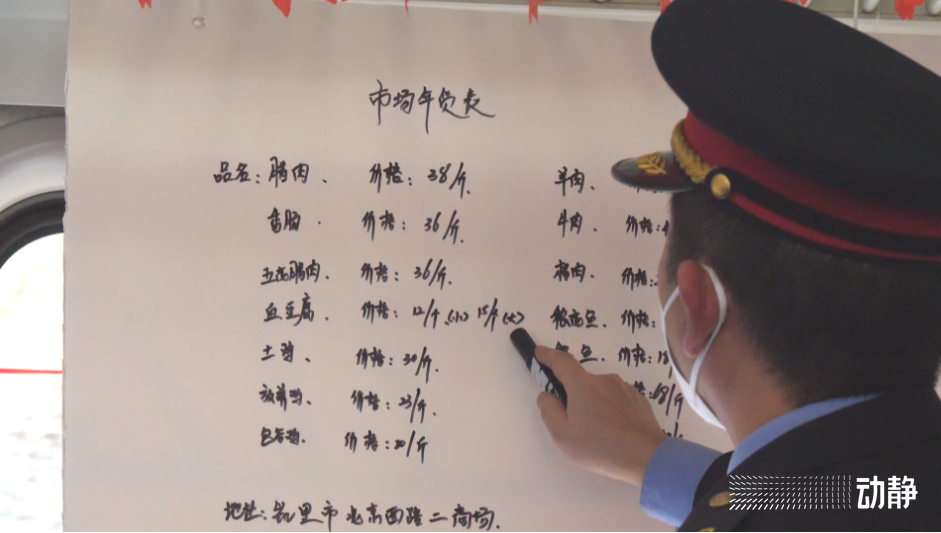 市场年货表
品名：腊肉、 价格：38/斤. 羊肉、
香肠. 价格：36/斤. 牛肉. 价格：
五花腊肉 价格：36/斤. 猪肉. 价格：
血豆腐. 价格：12/个(小) 15/个(大) 价格：
土鸡、 价格：30/斤. 鱼. 价格：18
放养鸡、 价格：23/斤. 格：18/斤
价格：20/斤
地址：凯里市北京西路二商场.
动静